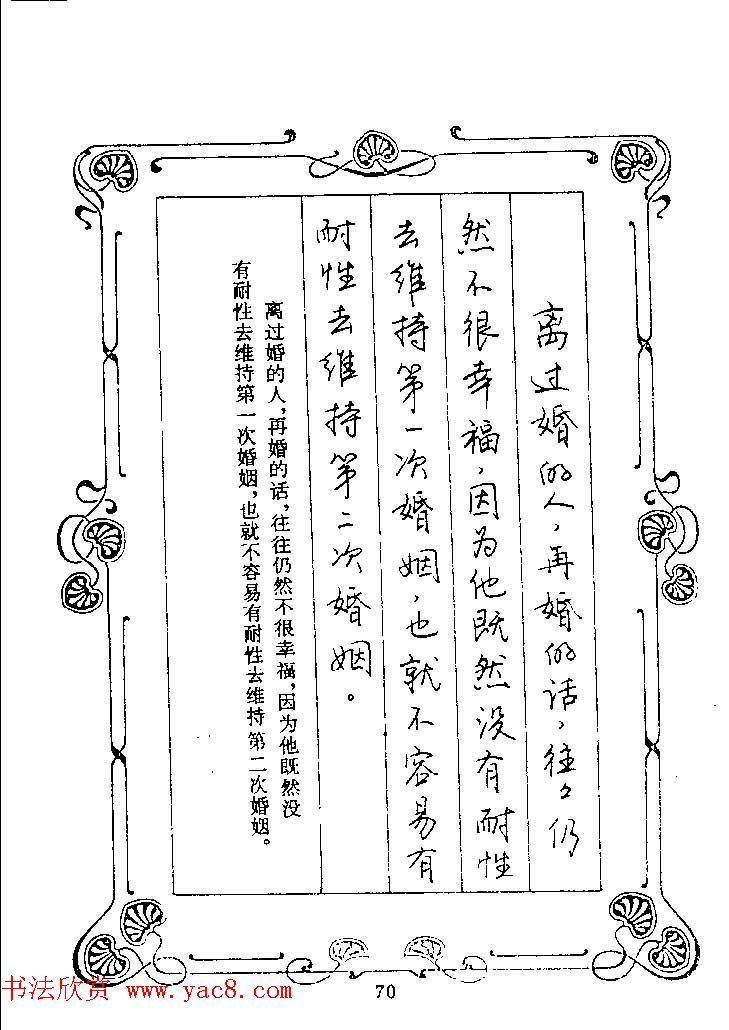 离过婚的人，再婚的话，往々仍
然不很幸福，因为他既然没有耐性
去维持第一次婚姻，也就不容易有
耐性去维持第二次婚姻。
离过婚的人，再婚的话，往往仍然不很幸福，因为他既然没
有耐性去维持第一次婚姻，也就不容易有耐性去维持第二次婚姻。
书法欣赏 www.yac8.com
70